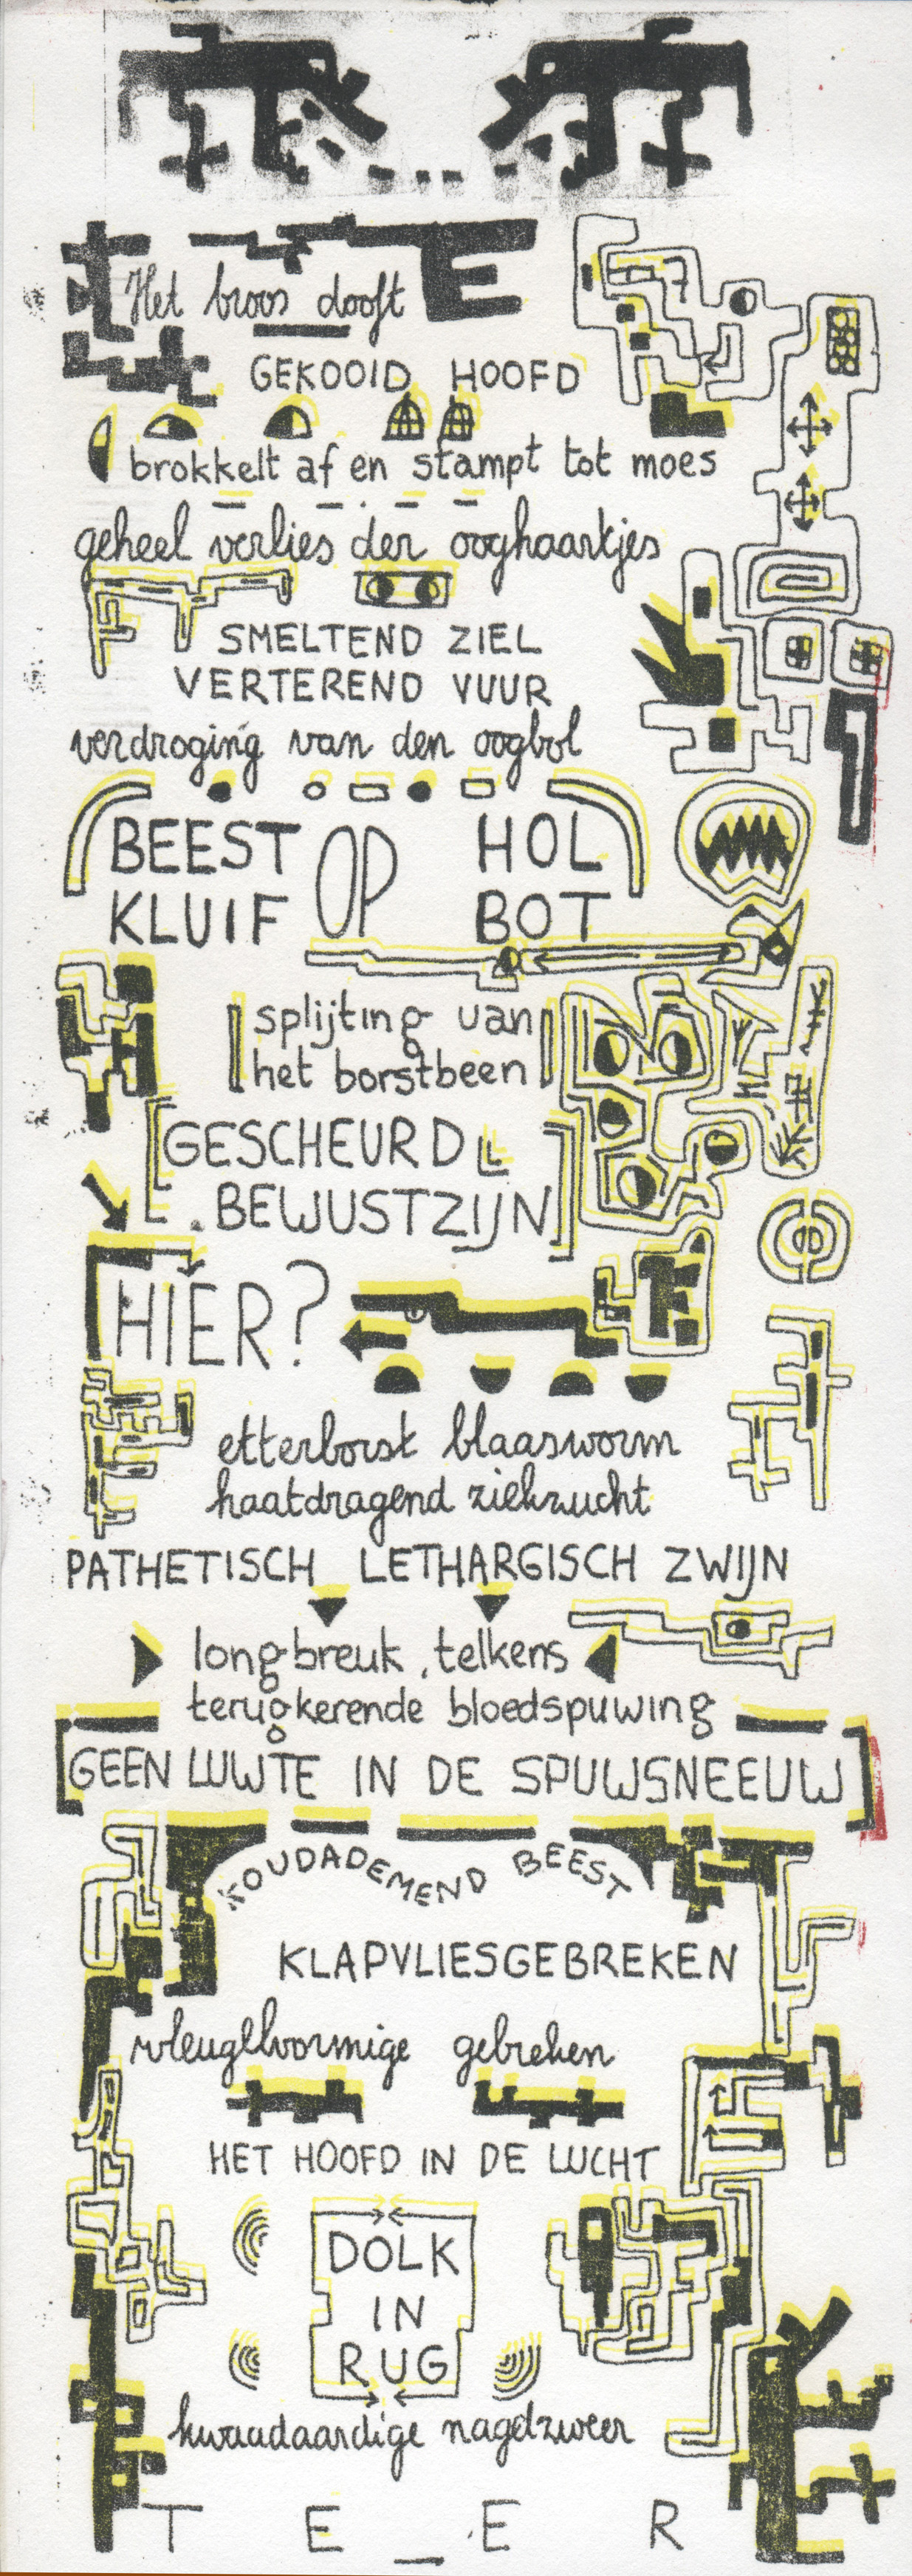 Het broos dooft
GEKOOID HOOFD
brokkelt af en stampt tot moes
geheel verlies der ooghaartjes
SMELTEND ZIEL
VERTEREND VUUR
verdroging van den oogbol
BEEST OP HOL
KLUIF BOT
splijting van
het borstbeen
GESCHEURD
BEWUSTZIJN
HIER?
etterborst blaasworm
haatdragend ziekzucht
PATHETISCH LETHARGISCH ZWIJN
longbreuk, telkens
terugkerende bloedspuwing
GEEN LUWTE IN DE SPUWSNEEUW
KOUDADEMEND BEEST
KLAPVLIESGEBREKEN
vleugelvormige gebreken
HET HOOFD IN DE LUCHT
DOLK
IN
RUG
kwaadaardige nagelzweer
T E E R